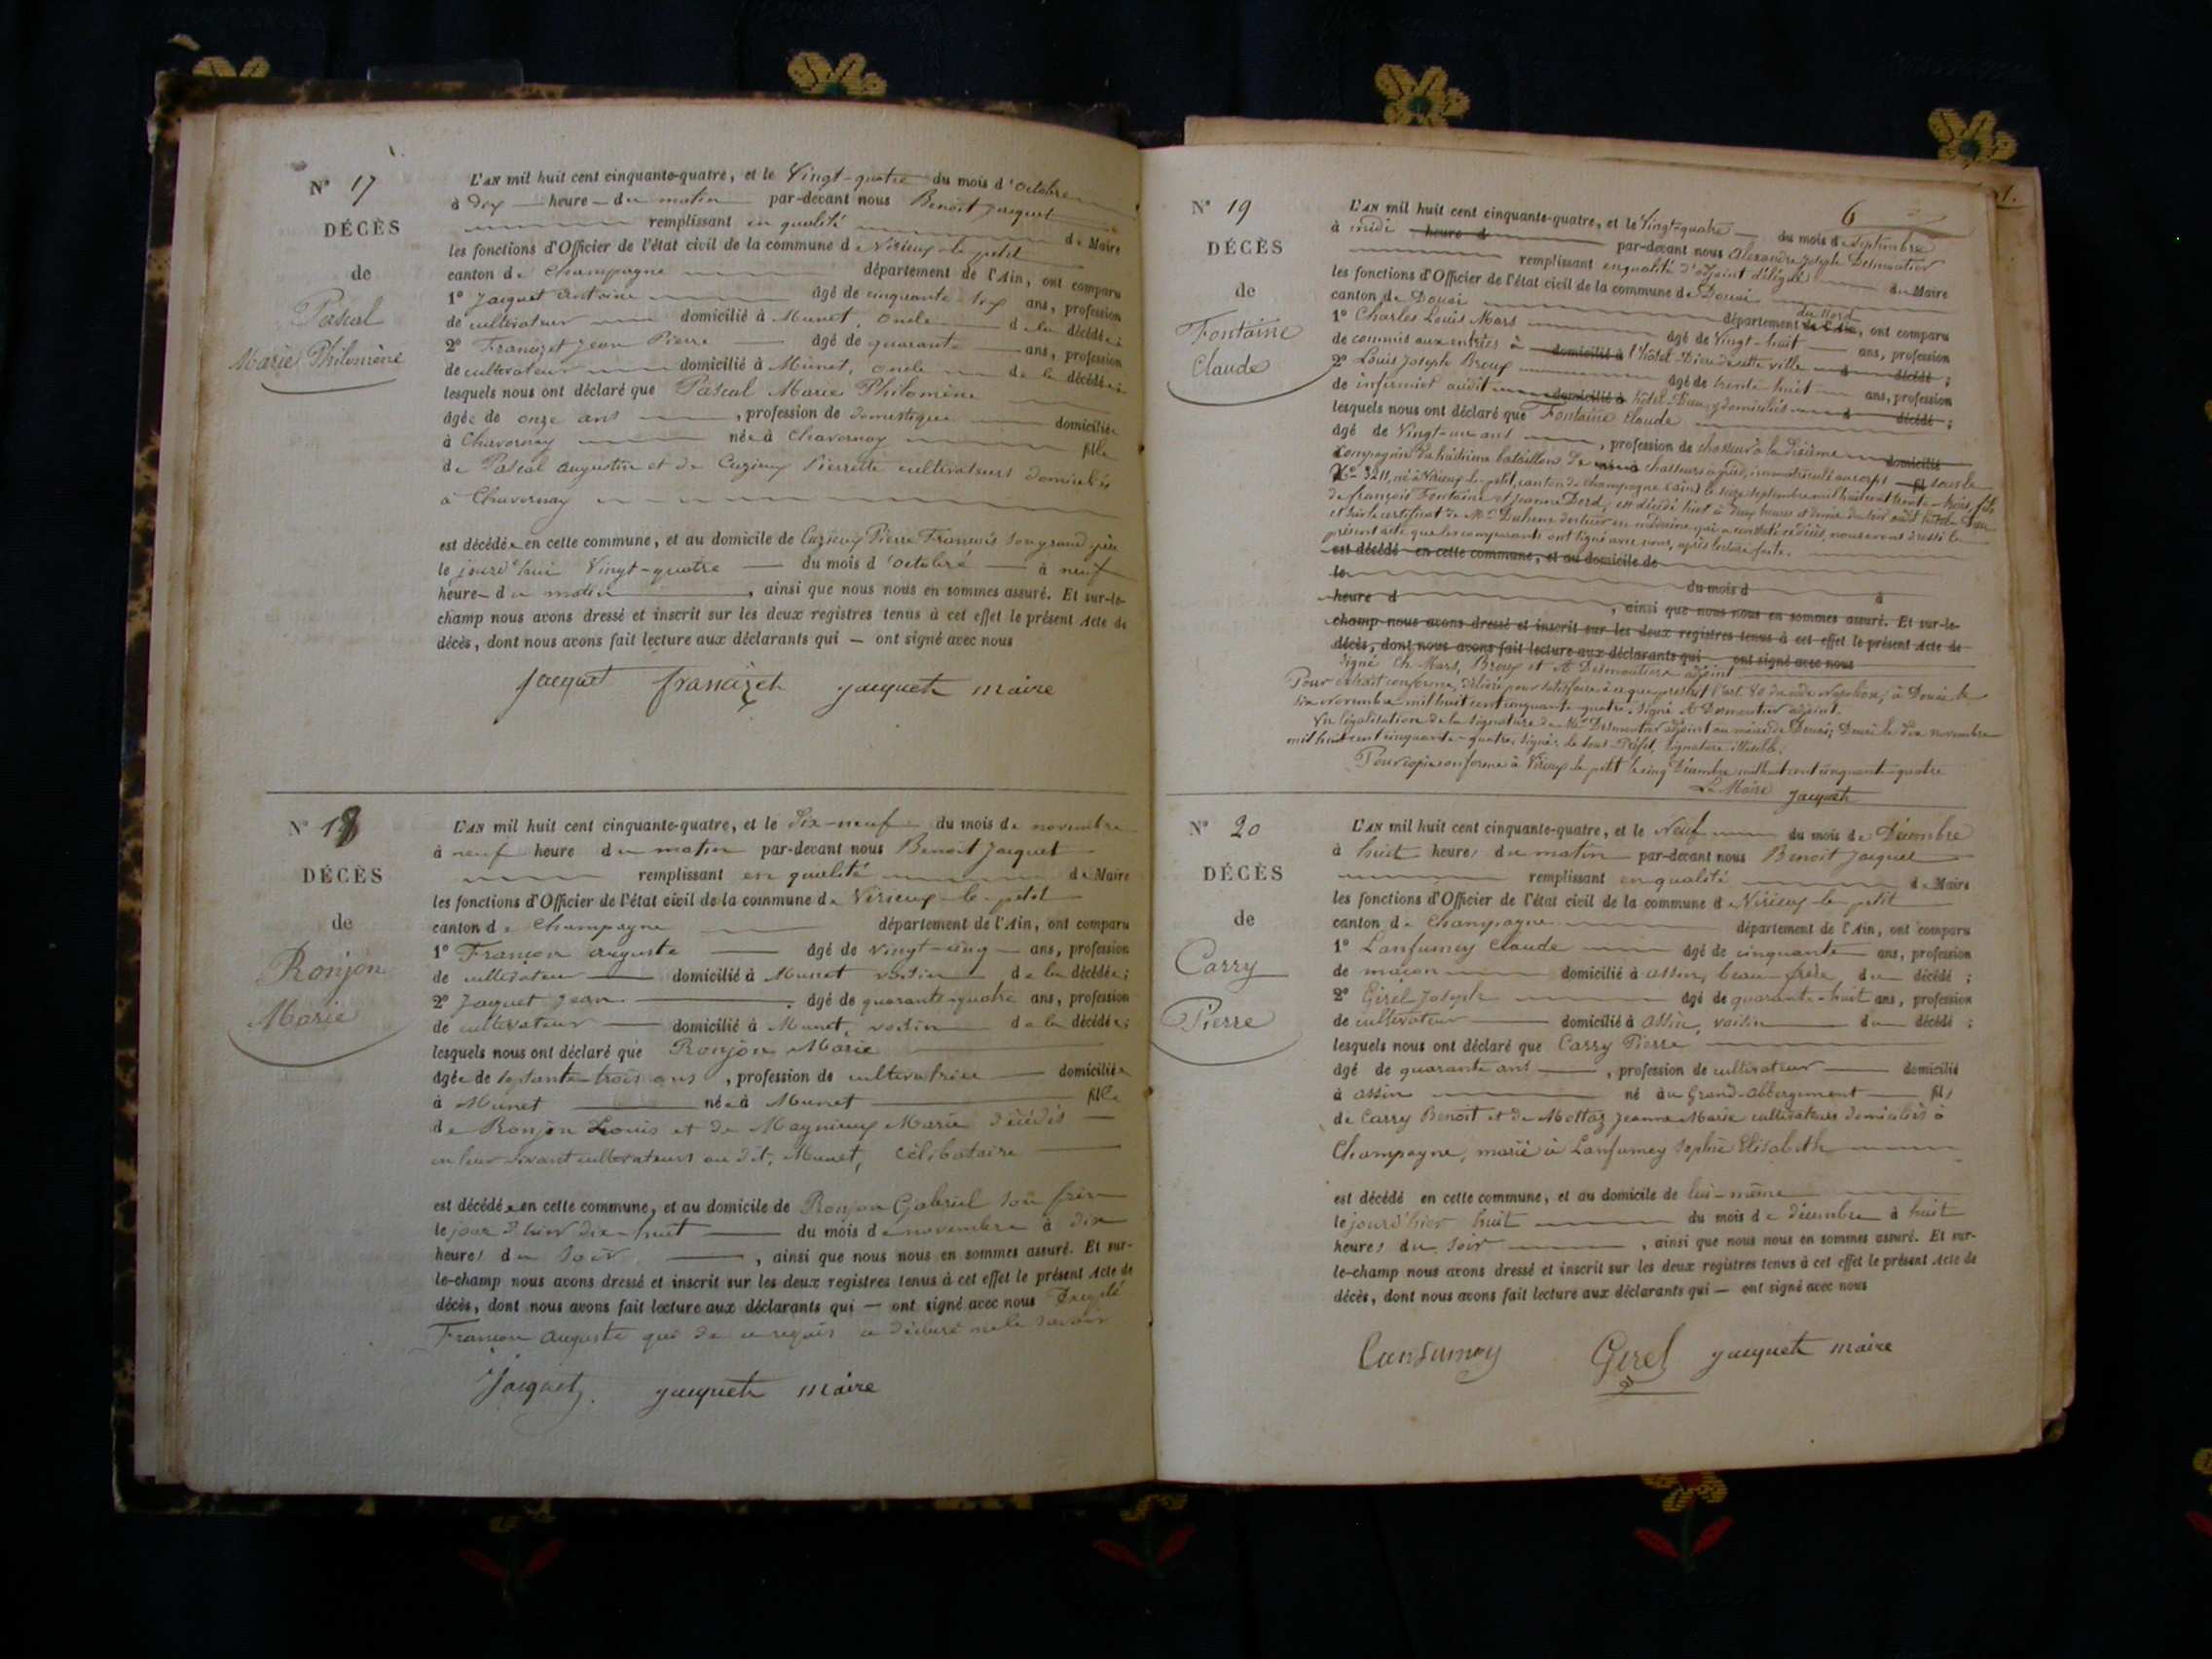 N° 17
DÉCÈS
de
Pascal
Marie Philomène
L'AN mil huit cent cinquante-quatre, et le Vingt-quatre du mois d'octobre
à dix heure du matin par-devant nous Benoit Jacquet
remplissant en qualité de Maire
les fonctions d'Officier de l'état civil de la commune de Virieux-le-petit
canton de Champagne département de l'Ain, ont comparu
1° Jacquet Antoine âgé de cinquante-six ans, profession
de cultivateur domicilié à Munet, oncle de la décédée;
2° Francizet Jean Pierre âgé de quarante ans, profession
de cultivateur domicilié à Munet, oncle de la décédée;
lesquels nous ont déclaré que Pascal Marie Philomène
âgée de onze ans, profession de domestique domiciliée
à Chavornay née à Chavornay fille
de Pascal Augustin et de Cuzieux Pierrette cultivateurs domiciliés
à Chavornay
est décédée en cette commune, et au domicile de Cuzieux Pierre François son grand père
le jourd'hui Vingt-quatre du mois d'octobre à neuf
heure du matin, ainsi que nous nous en sommes assuré. Et sur-le-
champ nous avons dressé et inscrit sur les deux registres tenus à cet effet le présent Acte de
décès, dont nous avons fait lecture aux déclarants qui — ont signé avec nous
Jacquet francizet Jacquet maire
N° 18
DÉCÈS
de
Ronjon
Marie
L'AN mil huit cent cinquante-quatre, et le dix-neuf du mois de novembre
à neuf heure du matin par-devant nous Benoit Jacquet
remplissant en qualité de Maire
les fonctions d'Officier de l'état civil de la commune de Virieux-le-petit
canton de Champagne département de l'Ain, ont comparu
1° Françon auguste âgé de vingt-cinq ans, profession
de cultivateur domicilié à Munet voisin de la décédée;
2° Jacquet Jean âgé de quarante-quatre ans, profession
de cultivateur domicilié à Munet, voisin de la décédée;
lesquels nous ont déclaré que Ronjon Marie
âgée de septante-trois ans, profession de cultivatrice domiciliée
à Munet née à Munet fille
de Ronjon Louis et de Maynieux Marie décédés
en leur vivant cultivateurs au dit Munet, célibataire
est décédée en cette commune, et au domicile de Ronjon Gabriel son frère
le jour d'hier dix-huit du mois de novembre à dix
heures du soir, ainsi que nous nous en sommes assuré. Et sur-
le-champ nous avons dressé et inscrit sur les deux registres tenus à cet effet le présent Acte de
décès, dont nous avons fait lecture aux déclarants qui — ont signé avec nous Excepté
Françon Auguste qui de ce requis a déclaré ne le savoir
Jacquet. Jacquet maire
6
N° 19
DÉCÈS
de
Fontaine
Claude
L'AN mil huit cent cinquante-quatre, et le Vingt-quatre du mois de Septembre
à midi heure d par-devant nous Alexandre Joseph Desmoutier
remplissant en qualité d'adjoint délégué du Maire
les fonctions d'Officier de l'état civil de la commune de Douai
canton de Douai département de l'Ain, du Nord ont comparu
1° Charles Louis Mars âgé de Vingt-huit ans, profession
de commis aux entrées à domicilié à l'hôtel-Dieu de cette ville d décédé;
2° Louis Joseph Broux âgé de trente huit ans, profession
de infirmier audit domicilié à hôtel-Dieu, y domiciliés d décédé;
lesquels nous ont déclaré que Fontaine Claude
âgé de Vingt-un ans, profession de chasseur à la dixième domicilié
Compagnie du huitième bataillon de chasseurs à pied, immatriculé au corps sous le
N° 3211, né à Virieux-le-petit, canton de Champagne (Ain) le seize septembre mil huit cent trente-trois, fils
de François Fontaine et Jeanne Dord, est décédé hier à deux heures et demie du soir audit hôtel-Dieu
et sur le certificat de Mr Duhem docteur en médecine qui a constaté ce décès, nous avons dressé le
présent acte que les comparants ont signé avec nous, après lecture faite.
est décédé en cette commune, et au domicile de
le du mois d à
heure d, ainsi que nous nous en sommes assuré. Et sur-le-
champ nous avons dressé et inscrit sur les deux registres tenus à cet effet le présent Acte de
décès, dont nous avons fait lecture aux déclarants qui ont signé avec nous
Signé Ch. Mars, Broux et A. Desmoutier adjoint
Pour extrait conforme, délivré pour satisfaire à ce que prescrit l'art. 80 du code Napoléon, à Douai le
six Novembre mil huit cent cinquante-quatre. Signé A Desmoutier adjoint.
Vu légalisation de la signature de Mr Desmoutier adjoint au maire de Douai; Douai le dix novembre
mil huit cent cinquante-quatre, Signé: le Sous-Préfet, signature illisible.
Pour copie conforme à Virieux-le-petit le cinq Décembre mil huit cent cinquante-quatre
Le Maire Jacquet
N° 20
DÉCÈS
de
Carry
Pierre
L'AN mil huit cent cinquante-quatre, et le Neuf du mois de Décembre
à huit heures du matin par-devant nous Benoit Jacquet
remplissant en qualité de Maire
les fonctions d'Officier de l'état civil de la commune de Virieux-le-petit
canton de Champagne département de l'Ain, ont comparu
1° Lanfumey Claude âgé de cinquante ans, profession
de maçon domicilié à assin, beau-frère du décédé;
2° Girel Joseph âgé de quarante-huit ans, profession
de cultivateur domicilié à assin, voisin du décédé;
lesquels nous ont déclaré que Carry Pierre
âgé de quarante ans, profession de cultivateur domicilié
à assin né au Grand-abbergement fils
de Carry Benoit et de Mottaz Jeanne Marie cultivateurs domiciliés à
Champagne, marié à Lanfumey Sophie Elisabeth
est décédé en cette commune, et au domicile de lui-même
le jourd'hier huit du mois de décembre à huit
heures du soir, ainsi que nous nous en sommes assuré. Et sur-
le-champ nous avons dressé et inscrit sur les deux registres tenus à cet effet le présent Acte de
décès, dont nous avons fait lecture aux déclarants qui — ont signé avec nous
Lanfumey Girel Jacquet maire